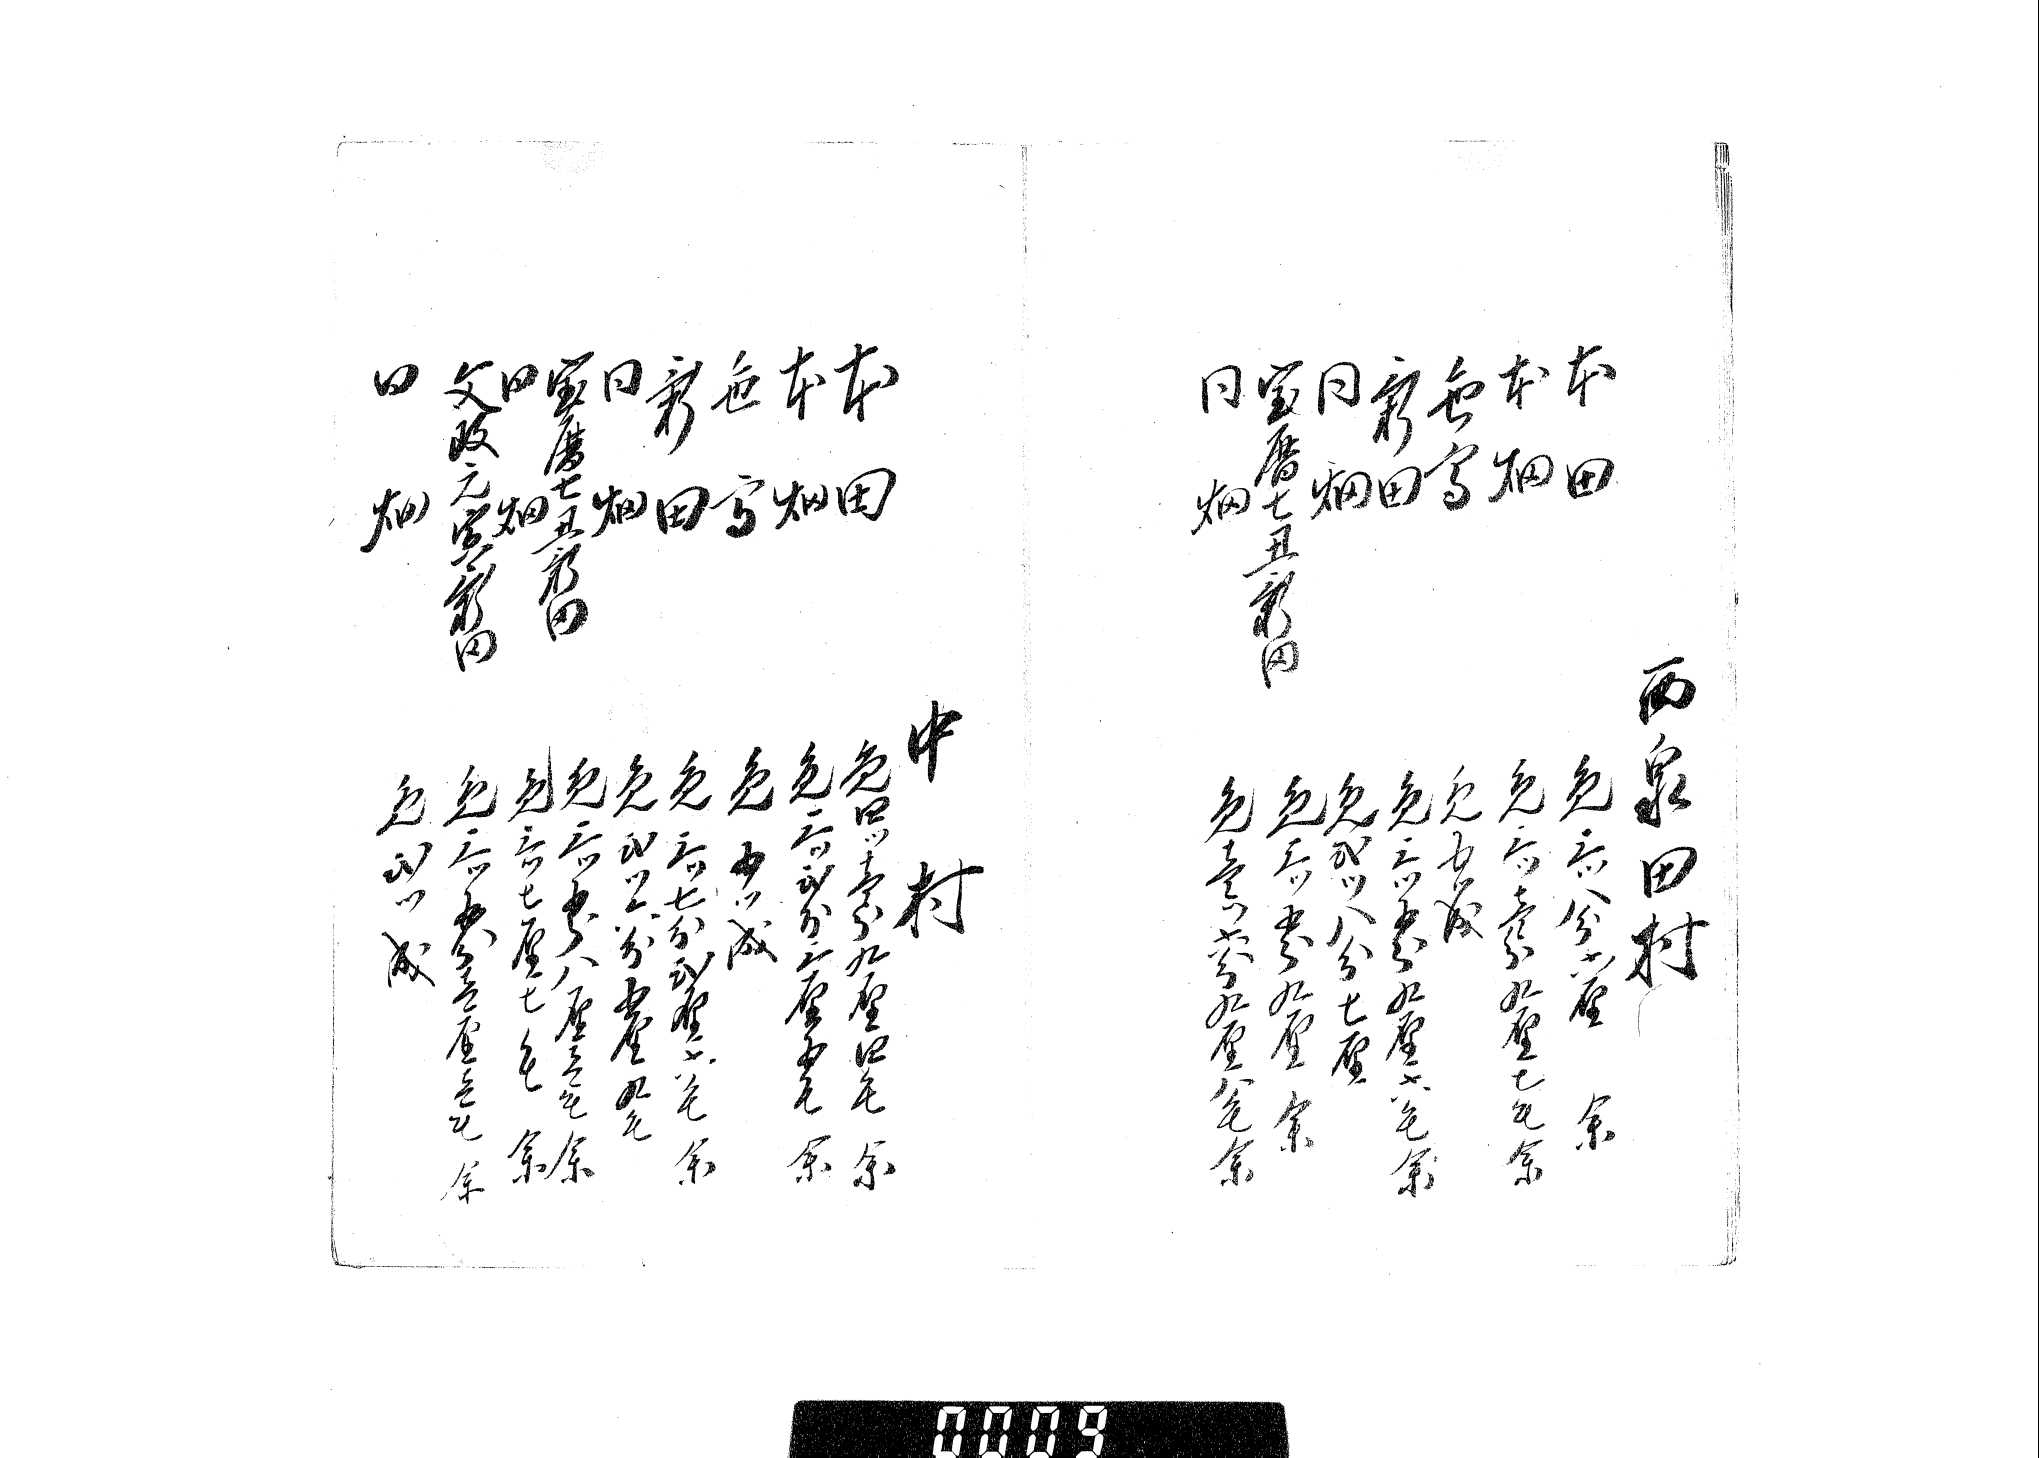 西泉田村
本田 免三ツ八分六厘 余
本畑 免三ツ壱分九厘七毛余
無高 免五ツ成
新田 免三ツ五分九厘六毛余
同畑 免弐ツ八分七厘
宝暦七丑新田 免三ツ五分九厘 余
同畑 免壱ツ六分九厘八毛余
中村
本田 免四ツ壱分九厘四毛 余
本畑 免三ツ弐分三厘五毛 余
色高 免五ツ成
新田 免三ツ七分弐厘六毛 余
同畑 免弐ツ三分五厘九毛
宝暦七丑新田 免三ツ五分八厘三毛 余
同畑 免三ツ七厘七毛 余
文政元寅新田 免三ツ五分三厘三毛 余
同畑 免弐ツ成
0009